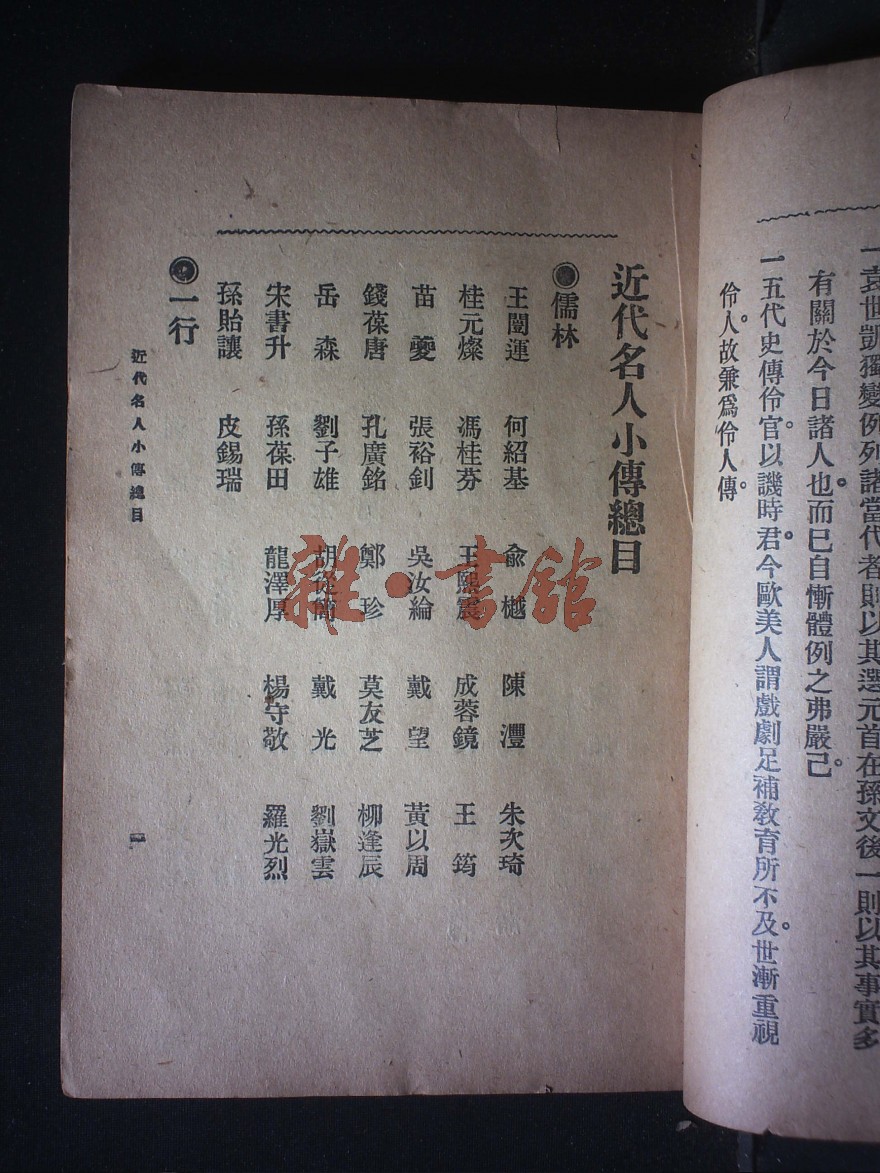 一袁世凱獨變例列諸當代者則以其選元首在孫文後一則以其事實多
有關於今日諸人也而已自慚體例之弗嚴已。
一五代史傳伶官。以譏時君。今歐美人謂戲劇足補敎育所不及。世漸重視
伶人。故兼爲伶人傳。
近代名人小傳總目
◉儒林
王闓運 何紹基 兪樾 陳灃 朱次琦
桂元燦 馮桂芬 王熙震 成蓉鏡 王筠
苗夔 張裕釗 吳汝綸 戴望 黃以周
錢葆唐 孔廣銘 鄭珍 莫友芝 柳逢辰
岳森 劉子雄 胡從簡 戴光 劉嶽雲
宋書升 孫葆田 龍澤厚 楊守敬 羅光烈
孫貽讓 皮錫瑞
◉一行
近代名人小傳總目
一
雜·書館